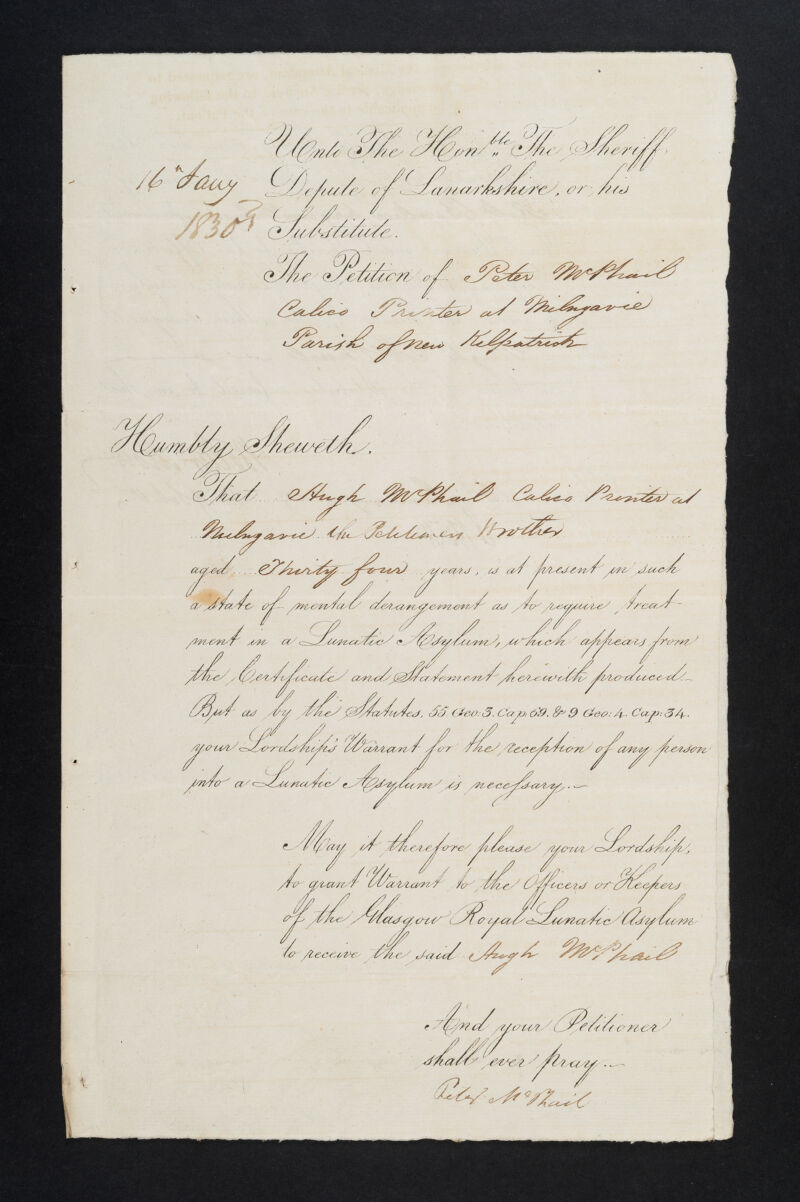 Unto The Hon.ble The Sheriff
16th Jany Depute of Lanarkshire, or his
Substitute.
The Petition of Peter McPhail
Calico Printer at Milngavie
Parish of New Kilpatrick
Humbly Sheweth.
That Hugh McPhail Calico Printer at
Milngavie the Petitioners Brother
aged Thirty four years, is at present in such
a state of mental derangement as to require treat-
ment in a Lunatic Asylum, which appears from
the Certificate and Statement herewith produced_
But as by the Statutes, 55 Geo: 3. Cap: 69. & 9 Geo: 4. Cap: 34.
your Lordship's Warrant for the reception of any person
into a Lunatic Asylum is necessary._
May it therefore please your Lordship,
to grant Warrant to the Officers or Keepers
of the Glasgow Royal Lunatic Asylum
to receive the said Hugh McPhail
And your Petitioner
shall ever pray._
Peter McPhail